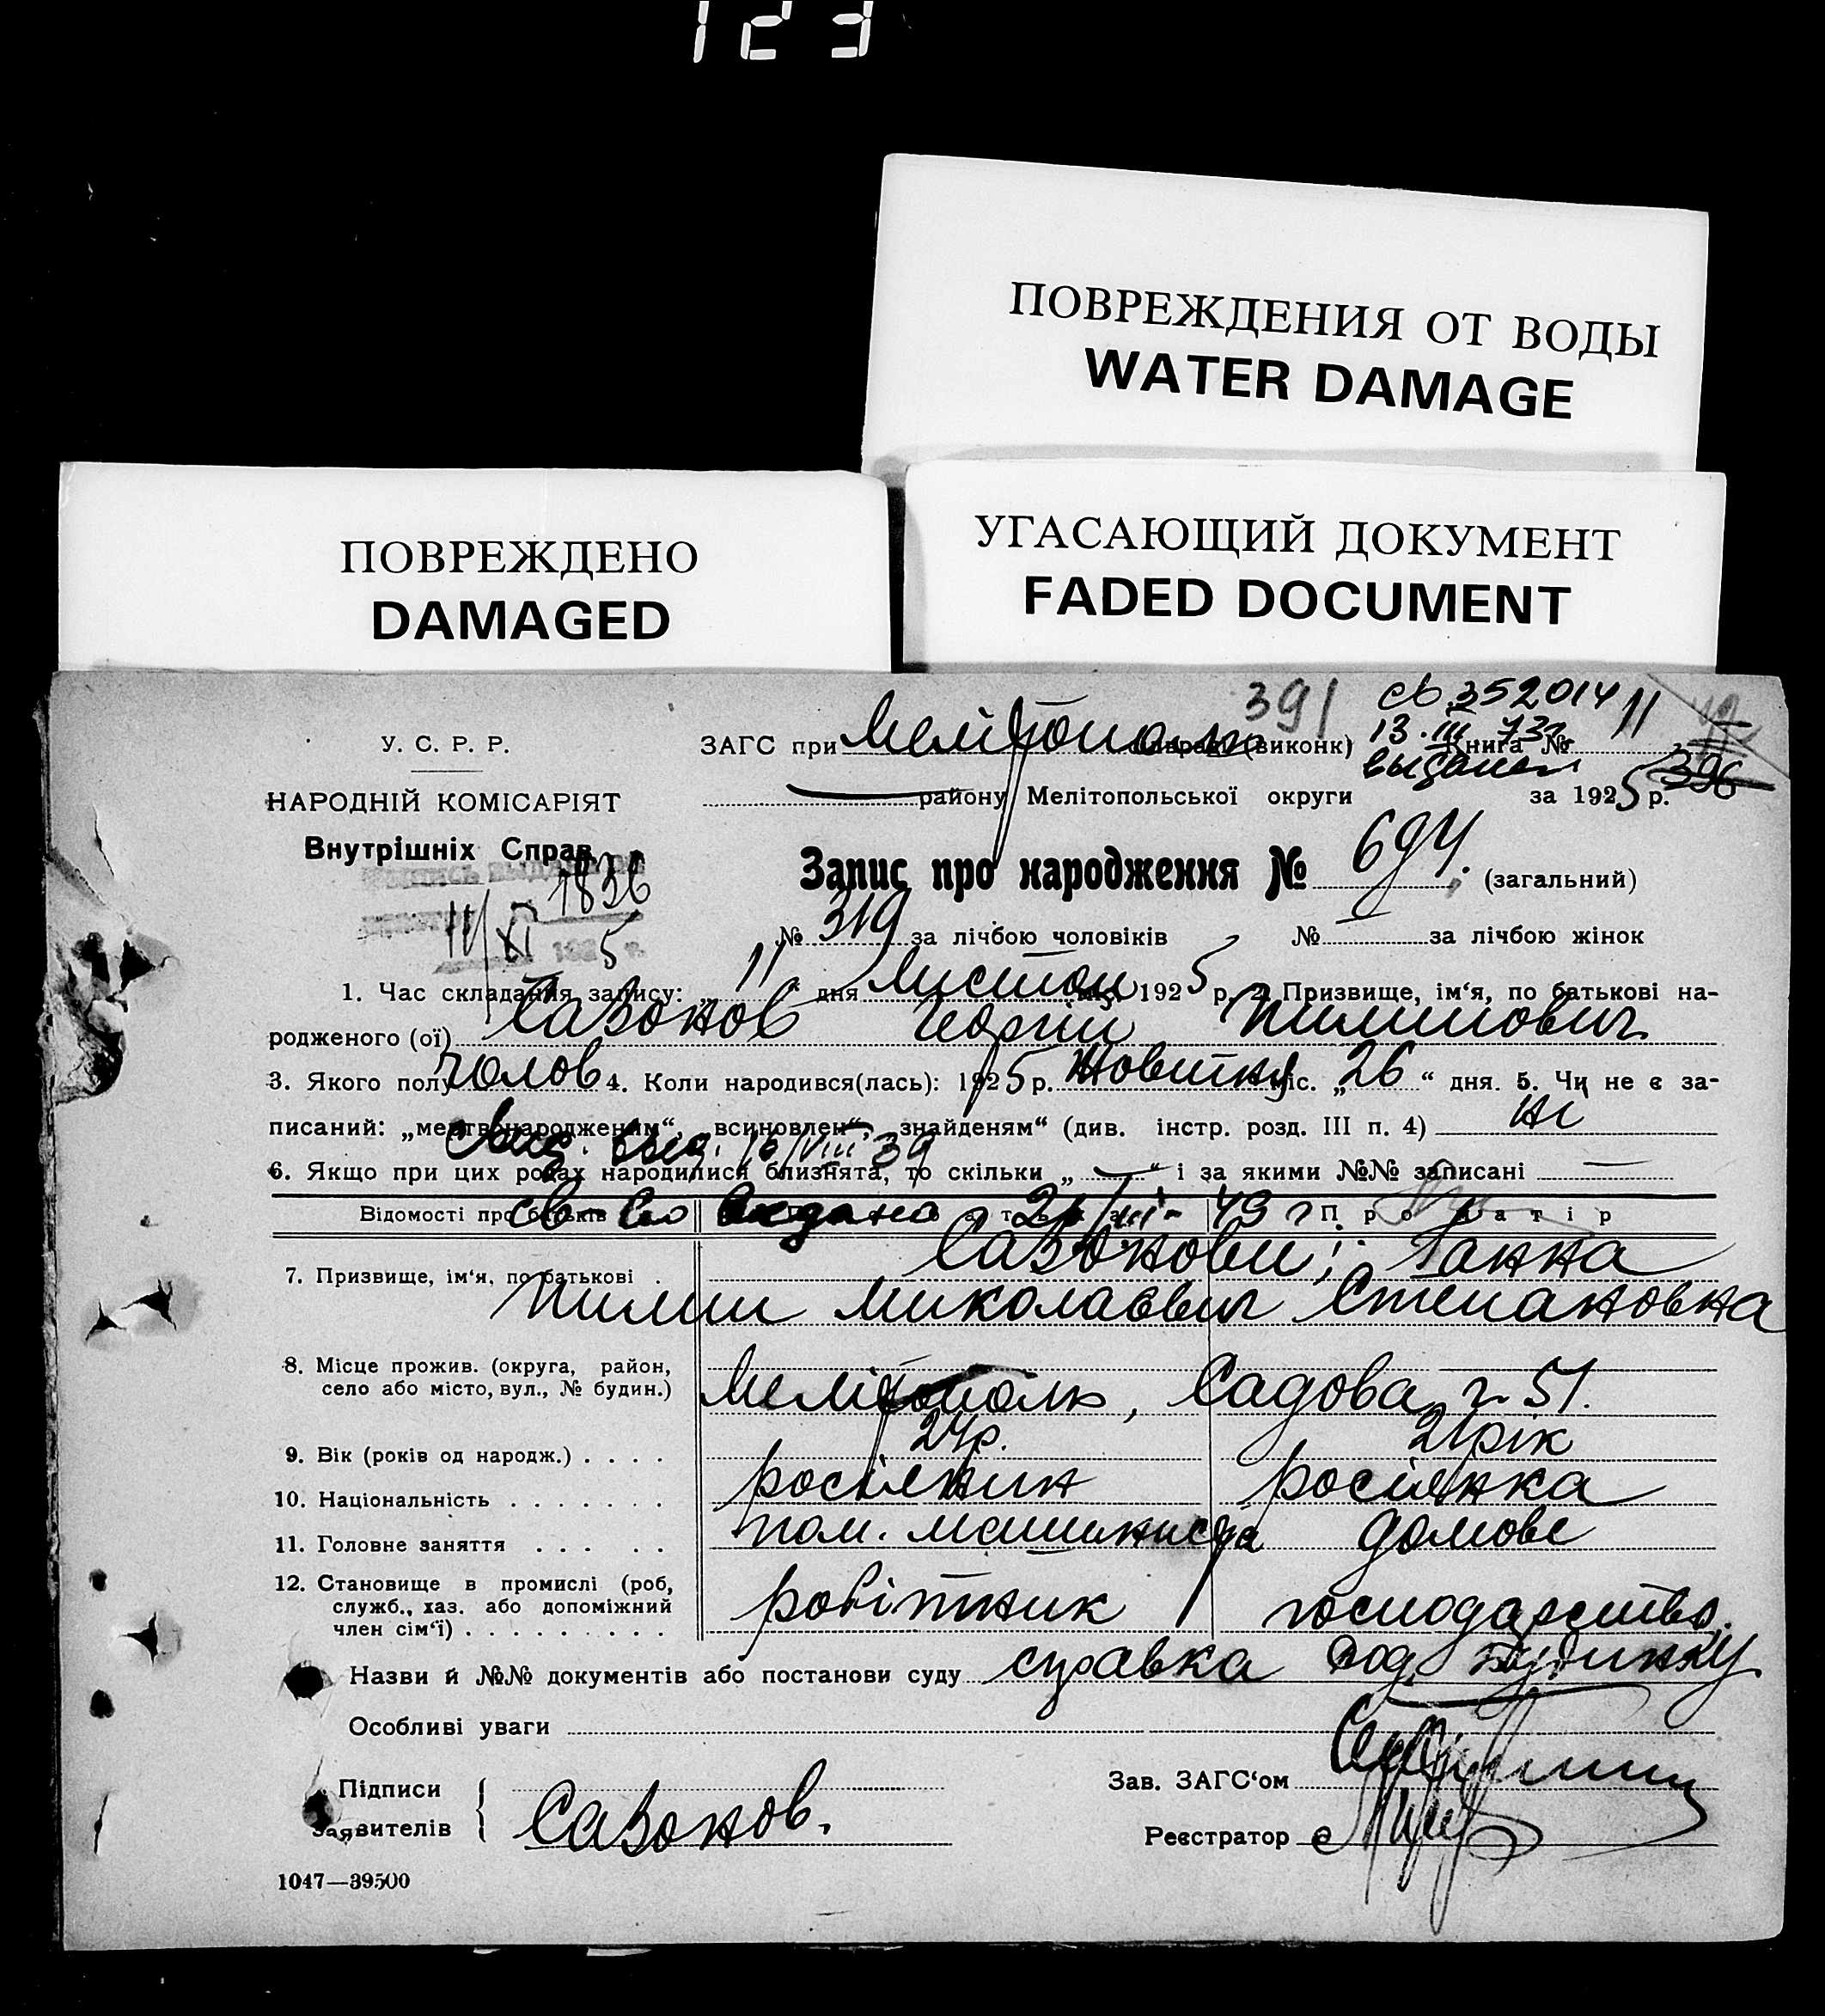 123
ПОВРЕЖДЕНИЯ ОТ ВОДЫ
WATER DAMAGE
ПОВРЕЖДЕНО
DAMAGED
УГАСАЮЩИЙ ДОКУМЕНТ
FADED DOCUMENT
391 св. 352014
13.III 73г.
выдано
У. С. Р. Р.
ЗАГС при Мелітополь (виконк) Книга № 11
НАРОДНІЙ КОМІСАРІЯТ
району Мелітопольської округи за 1925 р. 396
Внутрішніх Справ
1836
11/XI 1925 г.
Запис про народження № 694. (загальний)
№ 319 за лічбою чоловіків № за лічбою жінок
1. Час складання запису: „ 11 " дня Листоп 1925 р. 2. Призвище, ім‘я, по батькові на-
родженого (ої) Сазонов Георгій Пилипович
3. Якого полу чолов 4. Коли народився(лась): 1925 р. Жовтню міс. „ 26 “ дня. 5. Чи не є за-
писаний: „мертвонародженим“, всиновлен“, знайденям“ (див. інстр. розд. III п. 4) ні
Свид. выд. 16/VIII 39
6. Якщо при цих родах народилися близнята, то скільки „ — “ і за якими №№ записані —
Відомості про батьків Про матір
св-во выдано 21/III-49 г.
7. Призвище, ім‘я, по батькові . Сазонови; Ганна
Пилип Миколаєвич Степановна
8. Місце прожив. (округа, район,
село або місто, вул., № будин.) Мелітополь, Садова, ч. 51.
9. Вік (років од народж.) . . . . 24р. 21рік
10. Національність . . . . . . . росіянин росіянка
11. Головне заняття . . . . . пом. машиниста домове
12. Становище в промислі (роб,
служб., хаз. або допоміжний
член сім‘ї) . . . . . . . . . робітник господарство.
Назви й №№ документів або постанови суду справка будинку
Особливі уваги
Підписи
Заявителів Сазонов.
Зав. ЗАГС‘ом
Реєстратор
1047—39500